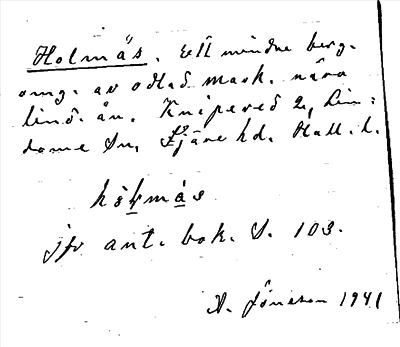 Holmås. Ett mindre berg.
omg. av odlad mark. nära
lind. ån. Knipered 2, Lin:
dome Sn, Fjäre hd. Hall. l.
hòḷmás
jfr ant. bok. S. 103.
A. Jönsson 1941